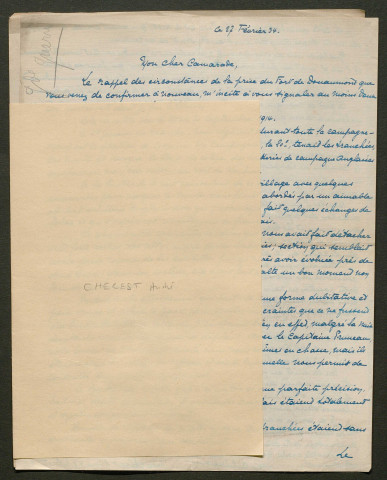 le 27 Février 34.
Mon cher Camarade,
Le rappel des circonstances de la prise du Fort de Douaumont que
vous venez de confirmer à nouveau, m'incite à vous signaler au moins deux
durant toute la campagne
tenait les tranchées
de campagne Anglaises
village avec quelques
abordés par un aimable
fait quelques échanges de
nous avait fait détacher
section qui semblait
avoir évoluée près de
halte un bon moment nos
CHEREST André
une forme dubitative et
craintes que ce ne fussent
en effet, malgré la
le Capitaine Pruneau,
en chasse, mais ils
nous permit de
une parfaite précision,
étaient totalement
tranchées étaient sans
Le